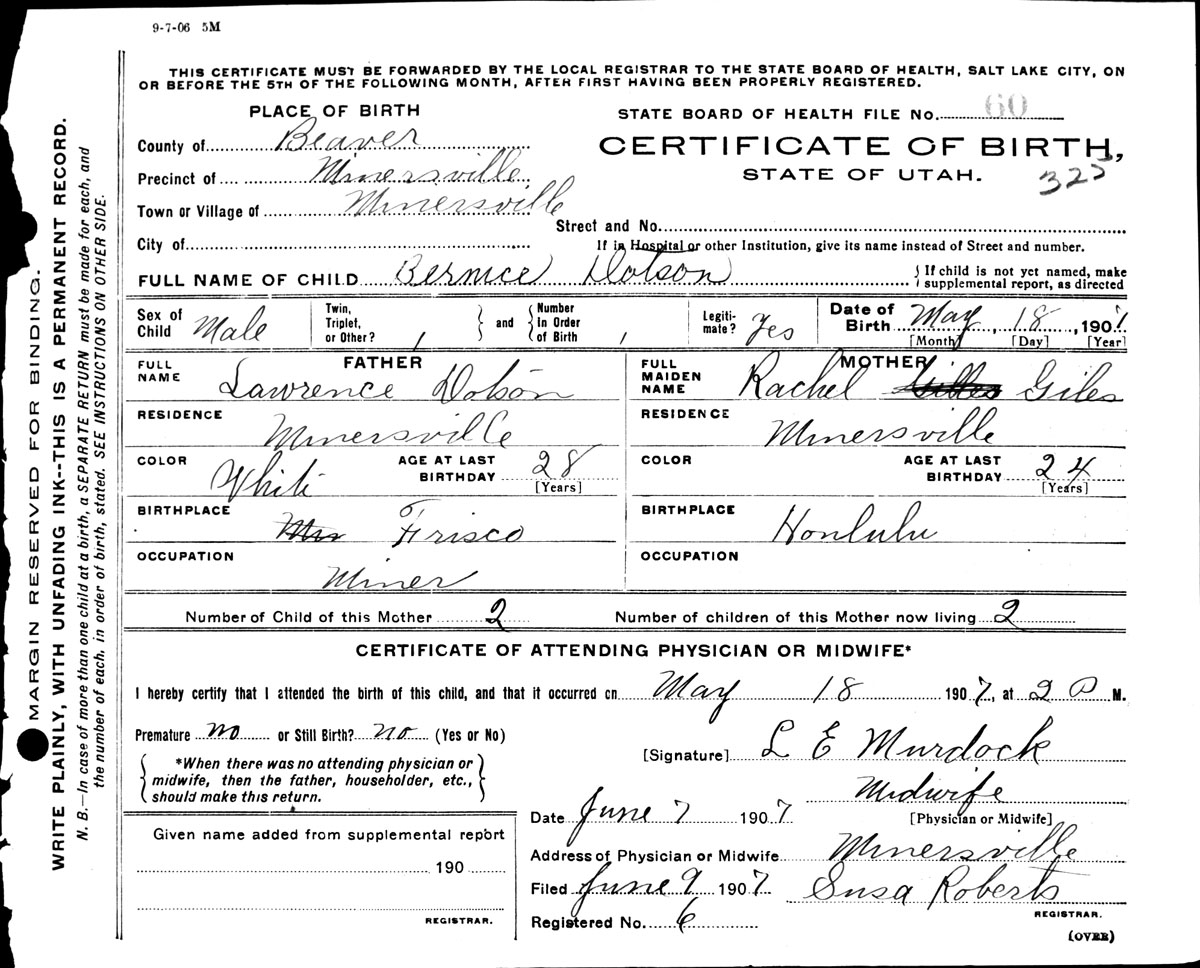 9-7-06 5M
THIS CERTIFICATE MUST BE FORWARDED BY THE LOCAL REGISTRAR TO THE STATE BOARD OF HEALTH, SALT LAKE CITY, ON
OR BEFORE THE 5TH OF THE FOLLOWING MONTH, AFTER FIRST HAVING BEEN PROPERLY REGISTERED.
PLACE OF BIRTH
STATE BOARD OF HEALTH FILE No. 60
County of Beaver
CERTIFICATE OF BIRTH,
Precinct of Minersville,
STATE OF UTAH. 325
Town or Village of Minersville
Street and No.
City of
If in Hospital or other Institution, give its name instead of Street and number.
FULL NAME OF CHILD Bernice Dotson
{ If child is not yet named, make
supplemental report, as directed
Sex of Child Male
Twin, Triplet, or Other? 1 } and { Number In Order of Birth 1
Legiti- mate? Yes
Date of Birth May, 18, 1907
[Month] [Day] [Year]
FATHER
FULL NAME Lawrence Dotson
MOTHER
FULL MAIDEN NAME Rachel Giles
RESIDENCE Minersville
RESIDENCE Minersville
COLOR White
AGE AT LAST BIRTHDAY 28
[Years]
COLOR
AGE AT LAST BIRTHDAY 24
[Years]
BIRTHPLACE Frisco
BIRTHPLACE Honlulu
OCCUPATION Miner
OCCUPATION
Number of Child of this Mother 2
Number of children of this Mother now living 2
CERTIFICATE OF ATTENDING PHYSICIAN OR MIDWIFE*
I hereby certify that I attended the birth of this child, and that it occurred on May 18 1907, at 2 P M.
Premature no or Still Birth? no (Yes or No)
[Signature] L E Murdock
{ *When there was no attending physician or
midwife, then the father, householder, etc.,
should make this return. }
Midwife
[Physician or Midwife]
Date June 7 1907
Address of Physician or Midwife Minersville
Filed June 9 1907 Susa Roberts
REGISTRAR.
Registered No. 6
(OVER)
Given name added from supplemental report
190
REGISTRAR.
MARGIN RESERVED FOR BINDING.
WRITE PLAINLY, WITH UNFADING INK--THIS IS A PERMANENT RECORD.
N. B.—In case of more than one child at a birth, a SEPARATE RETURN must be made for each, and
the number of each, in order of birth, stated. SEE INSTRUCTIONS ON OTHER SIDE.